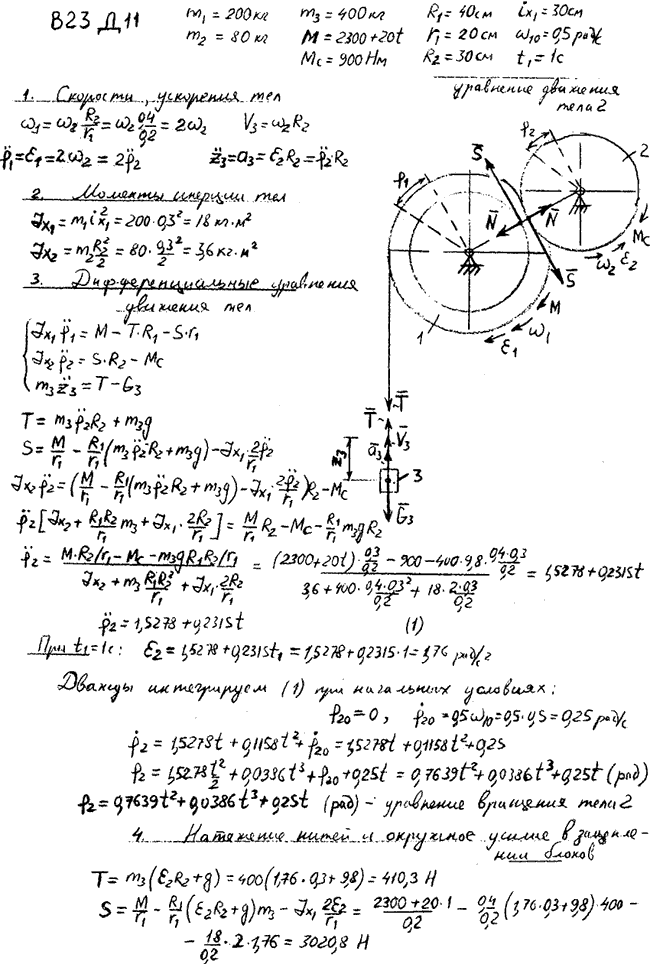 В23 Д11
m₁ = 200кг m₃ = 400кг R₁ = 40см iх₁ = 30см
m₂ = 80кг M = 2300+20t r₁ = 20см ω₁₀ = 0,5 рад/с
Mc = 900Нм R₂ = 30см t₁ = 1с
уравнение движения
тела 2
1. Скорости, ускорения тел
ω₁ = ω₂ R₂/r₁ = ω₂ 0,4/0,2 = 2ω₂ V₃ = ω₂R₂
φ̈₁ = ε₁ = 2ω̇₂ = 2φ̈₂ z̈₃ = a₃ = ε₂R₂ = φ̈₂·R₂
2. Моменты инерции тел
Jx₁ = m₁i²x₁ = 200·0,3² = 18 кг·м²
Jx₂ = m₂R₂²/2 = 80·0,3²/2 = 3,6 кг·м²
3. Дифференциальные уравнения
движения тел
Jx₁φ̈₁ = M − T·R₁ − S·r₁
Jx₂φ̈₂ = S·R₂ − Mc
m₃z̈₃ = T − G₃
T = m₃φ̈₂R₂ + m₃g
S = M/r₁ − R₁/r₁(m₃φ̈₂·R₂ + m₃g) − Jx₁·2φ̈₂/r₁
Jx₂φ̈₂ = (M/r₁ − R₁/r₁(m₃φ̈₂R₂ + m₃g) − Jx₁·2φ̈₂/r₁)R₂ − Mc
φ̈₂[Jx₂ + R₁R₂/r₁ m₃ + Jx₁·2R₂/r₁] = M/r₁ R₂ − Mc − R₁/r₁ m₃gR₂
φ̈₂ = (M·R₂/r₁ − Mc − m₃gR₁R₂/r₁)/(Jx₂ + m₃R₁R₂²/r₁ + Jx₁·2R₂/r₁) = ((2300+20t)·0,3/0,2 − 900 − 400·9,8·0,4·0,3/0,2)/(3,6 + 400·0,4·0,3²/0,2 + 18·2·0,3/0,2) = 1,5278 + 0,2315t
φ̈₂ = 1,5278 + 0,2315t (1)
При t₁ = 1с: ε₂ = 1,5278 + 0,2315t₁ = 1,5278 + 0,2315·1 = 1,76 рад/с²
Дважды интегрируем (1) при начальных условиях:
φ₂₀ = 0, φ̇₂₀ = 0,5ω₁₀ = 0,5·0,5 = 0,25 рад/с
φ̇₂ = 1,5278t + 0,1158t² + φ̇₂₀ = 1,5278t + 0,1158t² + 0,25
φ₂ = 1,5278t²/2 + 0,0386t³ + φ₂₀ + 0,25t = 0,7639t² + 0,0386t³ + 0,25t (рад)
φ₂ = 0,7639t² + 0,0386t³ + 0,25t (рад) - уравнение вращения тела 2
4. Натяжение нитей и окружное усилие в зацепле-
нии блоков
T = m₃(ε₂R₂ + g) = 400(1,76·0,3 + 9,8) = 410,3 Н
S = M/r₁ − R₁/r₁(ε₂R₂ + g)m₃ − Jx₁ 2ε₂/r₁ = (2300+20·1)/0,2 − 0,4/0,2(1,76·0,3 + 9,8)·400 −
− 18/0,2·2·1,76 = 3020,8 Н
φ₂
2
S̄
φ₁
N̄
N̄
Mc
ω₂
ε₂
S̄
M
ω₁
ε₁
1
T̄
T̄
V̄₃
z₃
ā₃
3
Ḡ₃